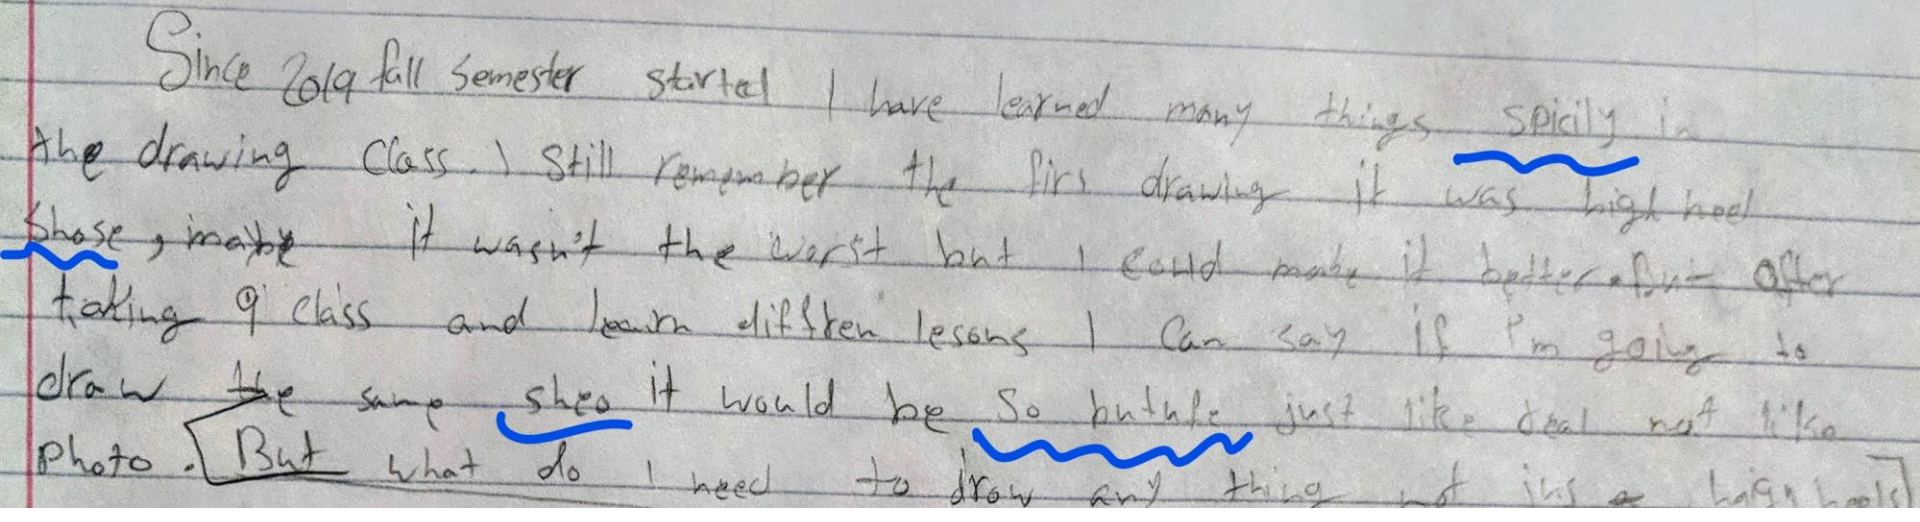 Since 2019 fall semester started I have learned many things spicily in
the drawing class. I still remember the firs drawing it was high heel
shose, maybe it wasn't the worst but I could make it better. But after
taking 9 class and learn diffren lesons I can say if I'm going to
draw the same sheo it would be so butufe just like real not like
photo. But what do I need to draw any thing not jus a high heels